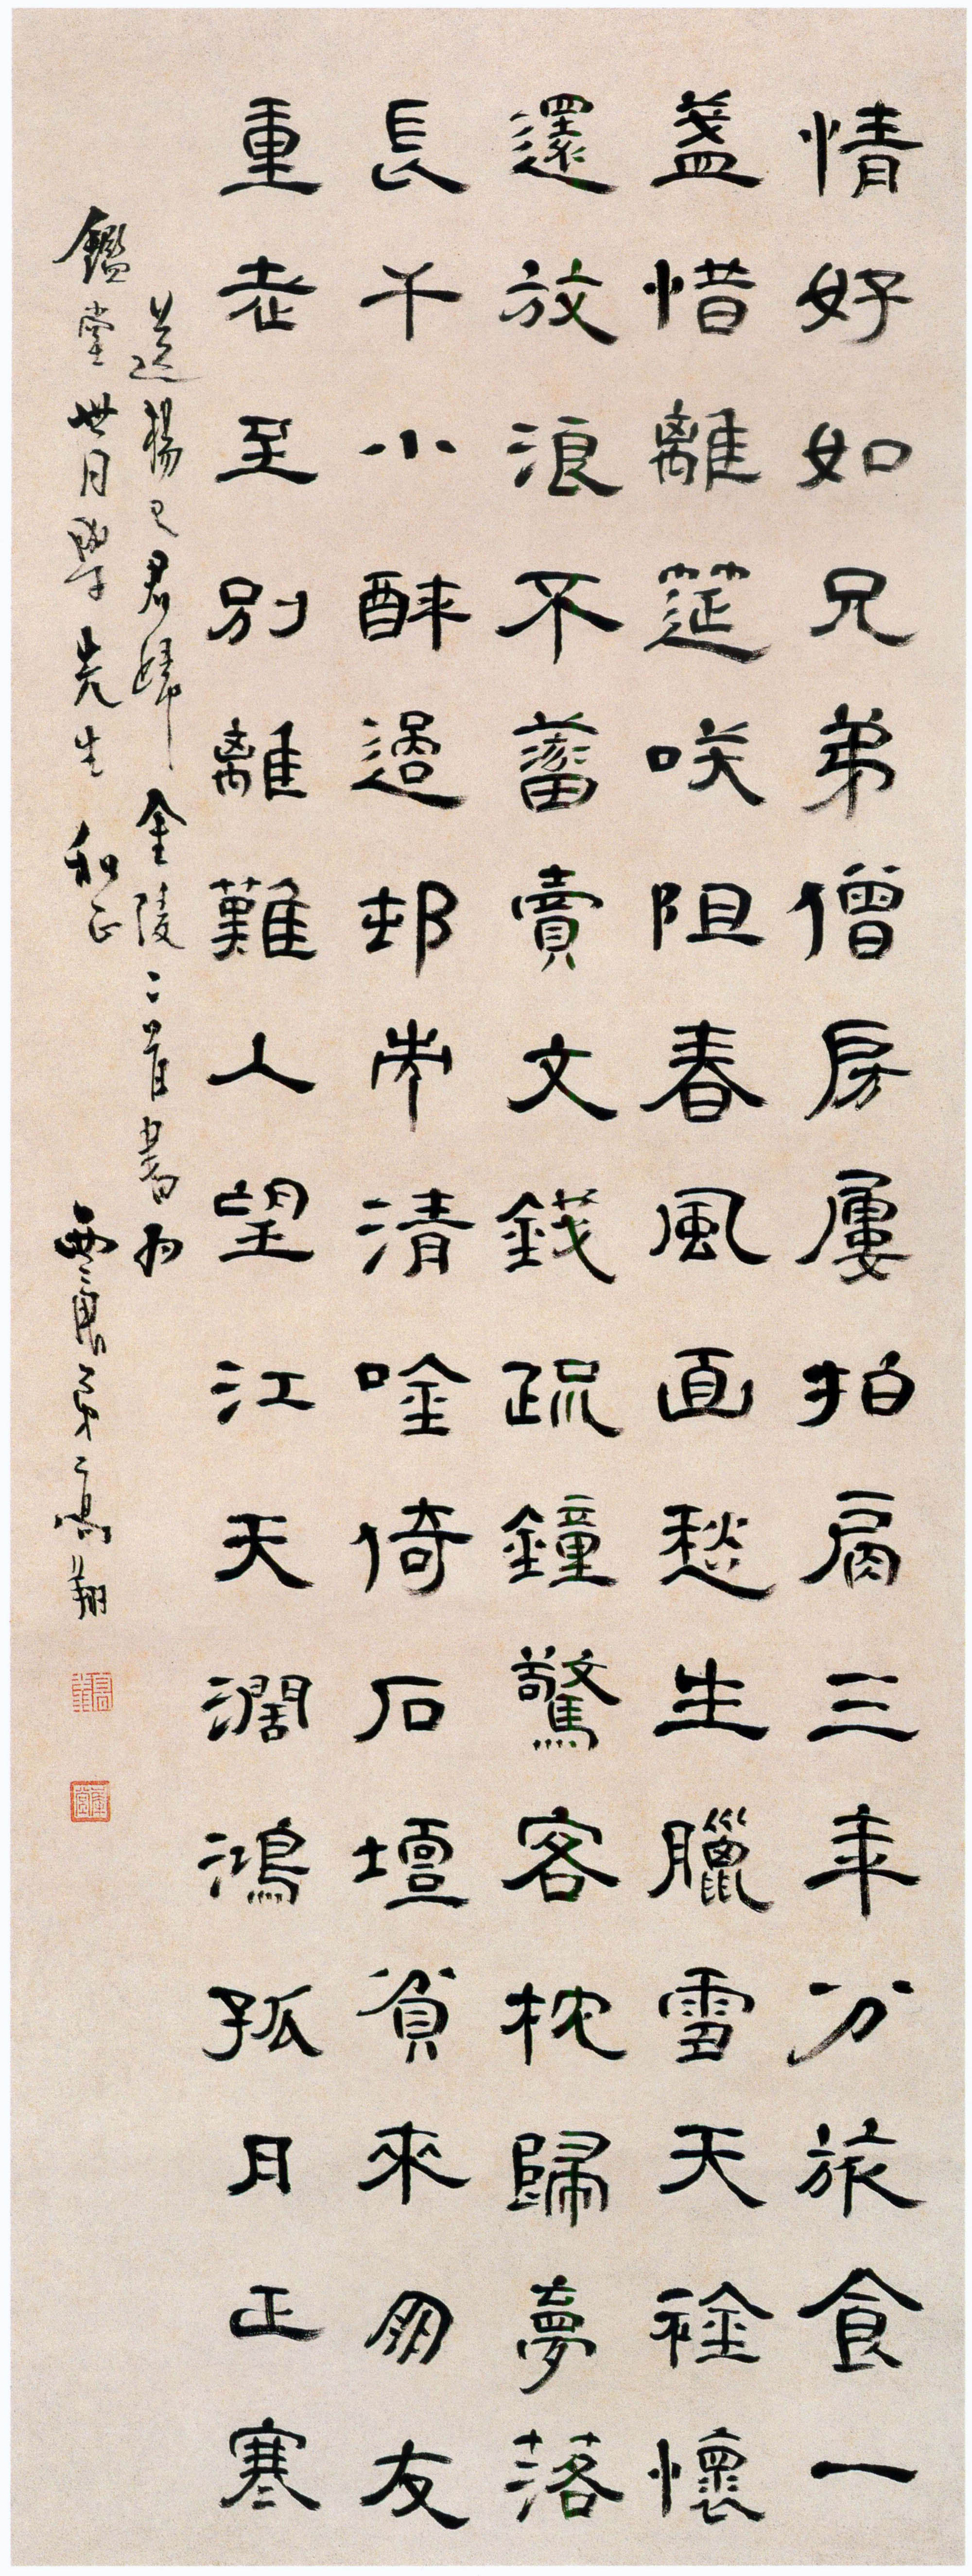 情好如兄弟僧房屢拍肩三年分旅食一
盞惜離莚咲阻春風面愁生臘雪天襟懷
還放浪不蓄賣文錢疏鐘驚客枕歸夢落
長干小酔過邨市清唫倚石壇貧來朋友
重老至別離難人望江天濶鴻孤月正寒
送楊已君歸金陵二首書為
鑑堂世同學先生和正
西唐弟高翔